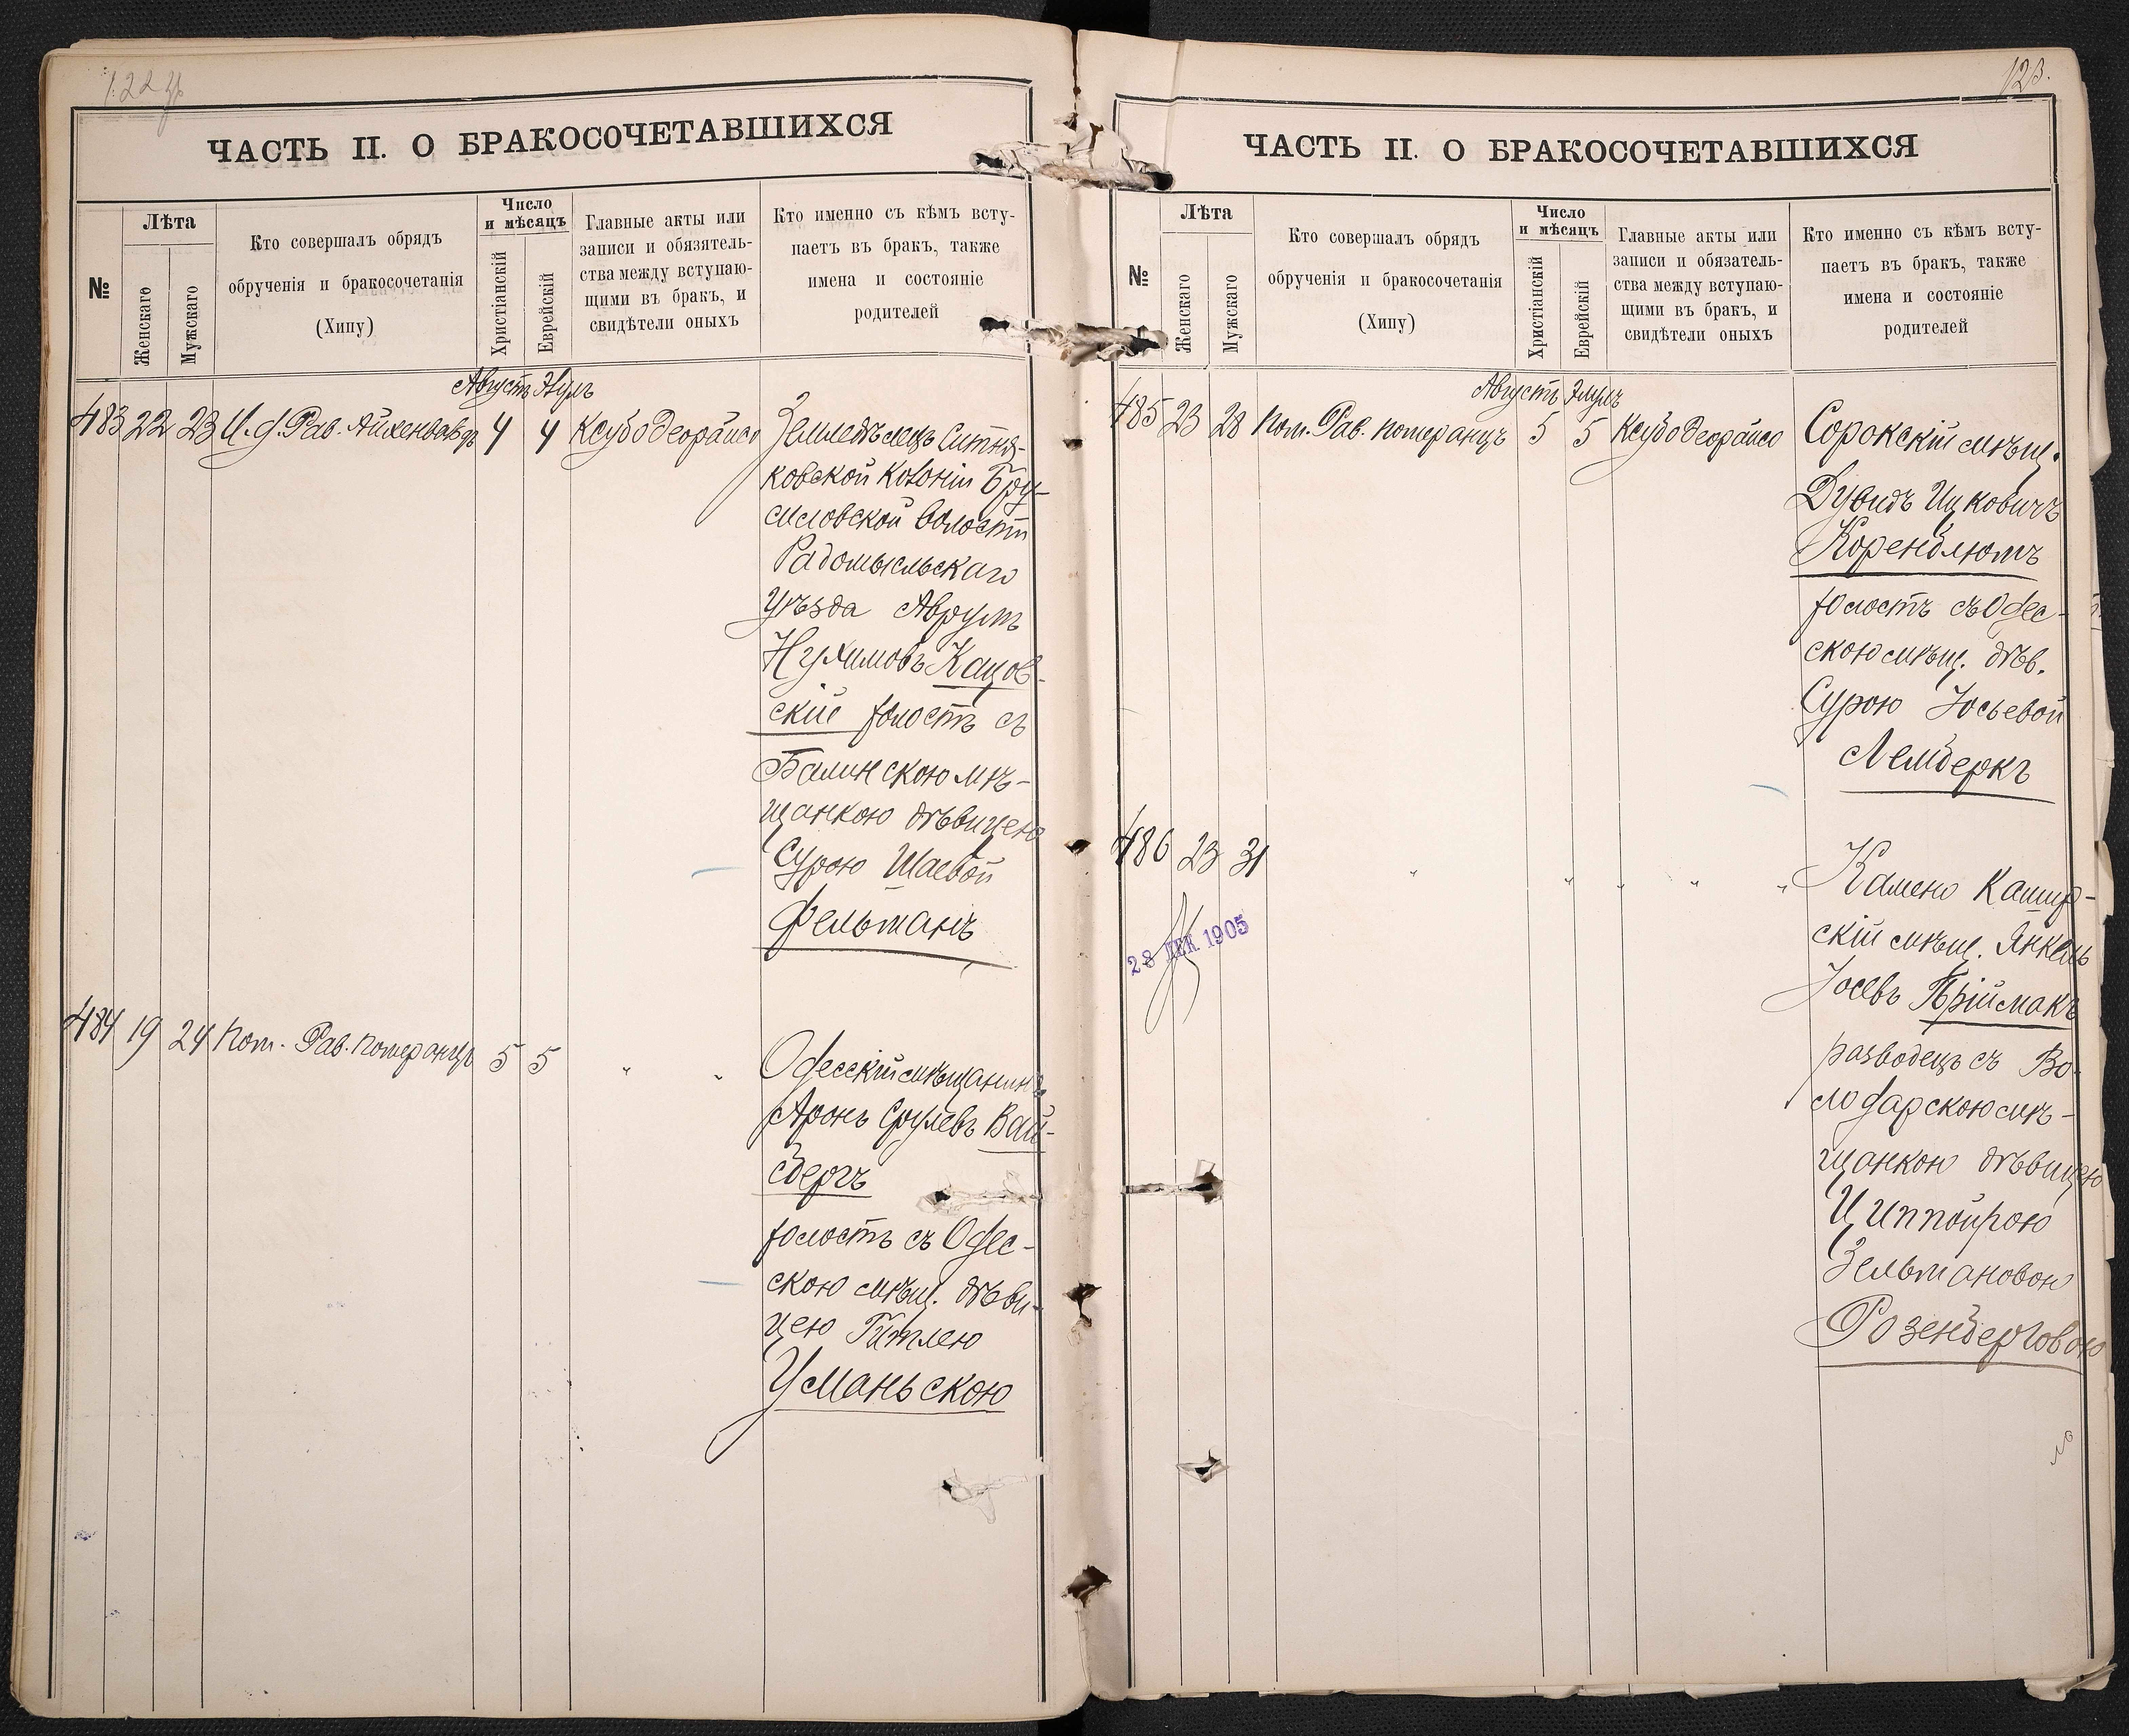 ЧАСТЬ II. О БРАКОСОЧЕТАВШИХСЯ
№
Лѣта
Женскаго
Мужскаго
Кто совершалъ обрядъ
обрученія и бракосочетанія
(Хипу)
Число
и мѣсяцъ
Христіанскій
Еврейскій
Главные акты или
записи и обязятель-
ства между вступаю-
щими въ бракъ, и
свидѣтели оныхъ
Кто именно съ кѣмъ всту-
паетъ въ бракъ, также
имена и состояніе
родителей
Августъ Элулъ
483 22 23 И. д. Рав. Айхенвальдъ 4 4 Ксубо Деорайсо Земледѣлецъ Ситня-
ковской колоніи Бру-
силовской волости
Радомысльскаго
уѣзда Аврумъ
Нухимовъ Кацов-
скій холостъ съ
Балинскою мѣ-
щанкою дѣвицею
Сурою Шаевой
Фельтанъ
484 19 24 Пом. Рав. Померанцъ 5 5 " " Одесскій мѣщанинъ
Аронъ Срулевъ Вай-
сбергъ
холостъ съ Одес-
скою мѣщ. дѣви-
цею Гитлею
Уманьскою
123.
ЧАСТЬ II. О БРАКОСОЧЕТАВШИХСЯ
№
Лѣта
Женскаго
Мужскаго
Кто совершалъ обрядъ
обрученія и бракосочетанія
(Хипу)
Число
и мѣсяцъ
Христіанскій
Еврейскій
Главные акты или
записи и обязатель-
ства между вступаю-
щими въ бракъ, и
свидѣтели оныхъ
Кто именно съ кѣмъ всту-
паетъ въ бракъ, также
имена и состояніе
родителей
Августъ Элулъ
485 23 28 Пом. Рав. Померанцъ 5 5 Ксубо Деорайсо Сорокскій мѣщ.
Дувидъ Ицковичъ
Коренблютъ
холостъ съ Одес-
скою мѣщ. дѣв.
Сурою Іосьевой
Лембергъ
486 23 31 " " " " " Камено Кашир-
скій мѣщ. Янкель
Іосевъ Пріймакъ
разводецъ съ Во-
лодарскою мѣ-
щанкою дѣвицею
Циппойрою
Зельмановою
Розенберговою
28 ДЕК 1905